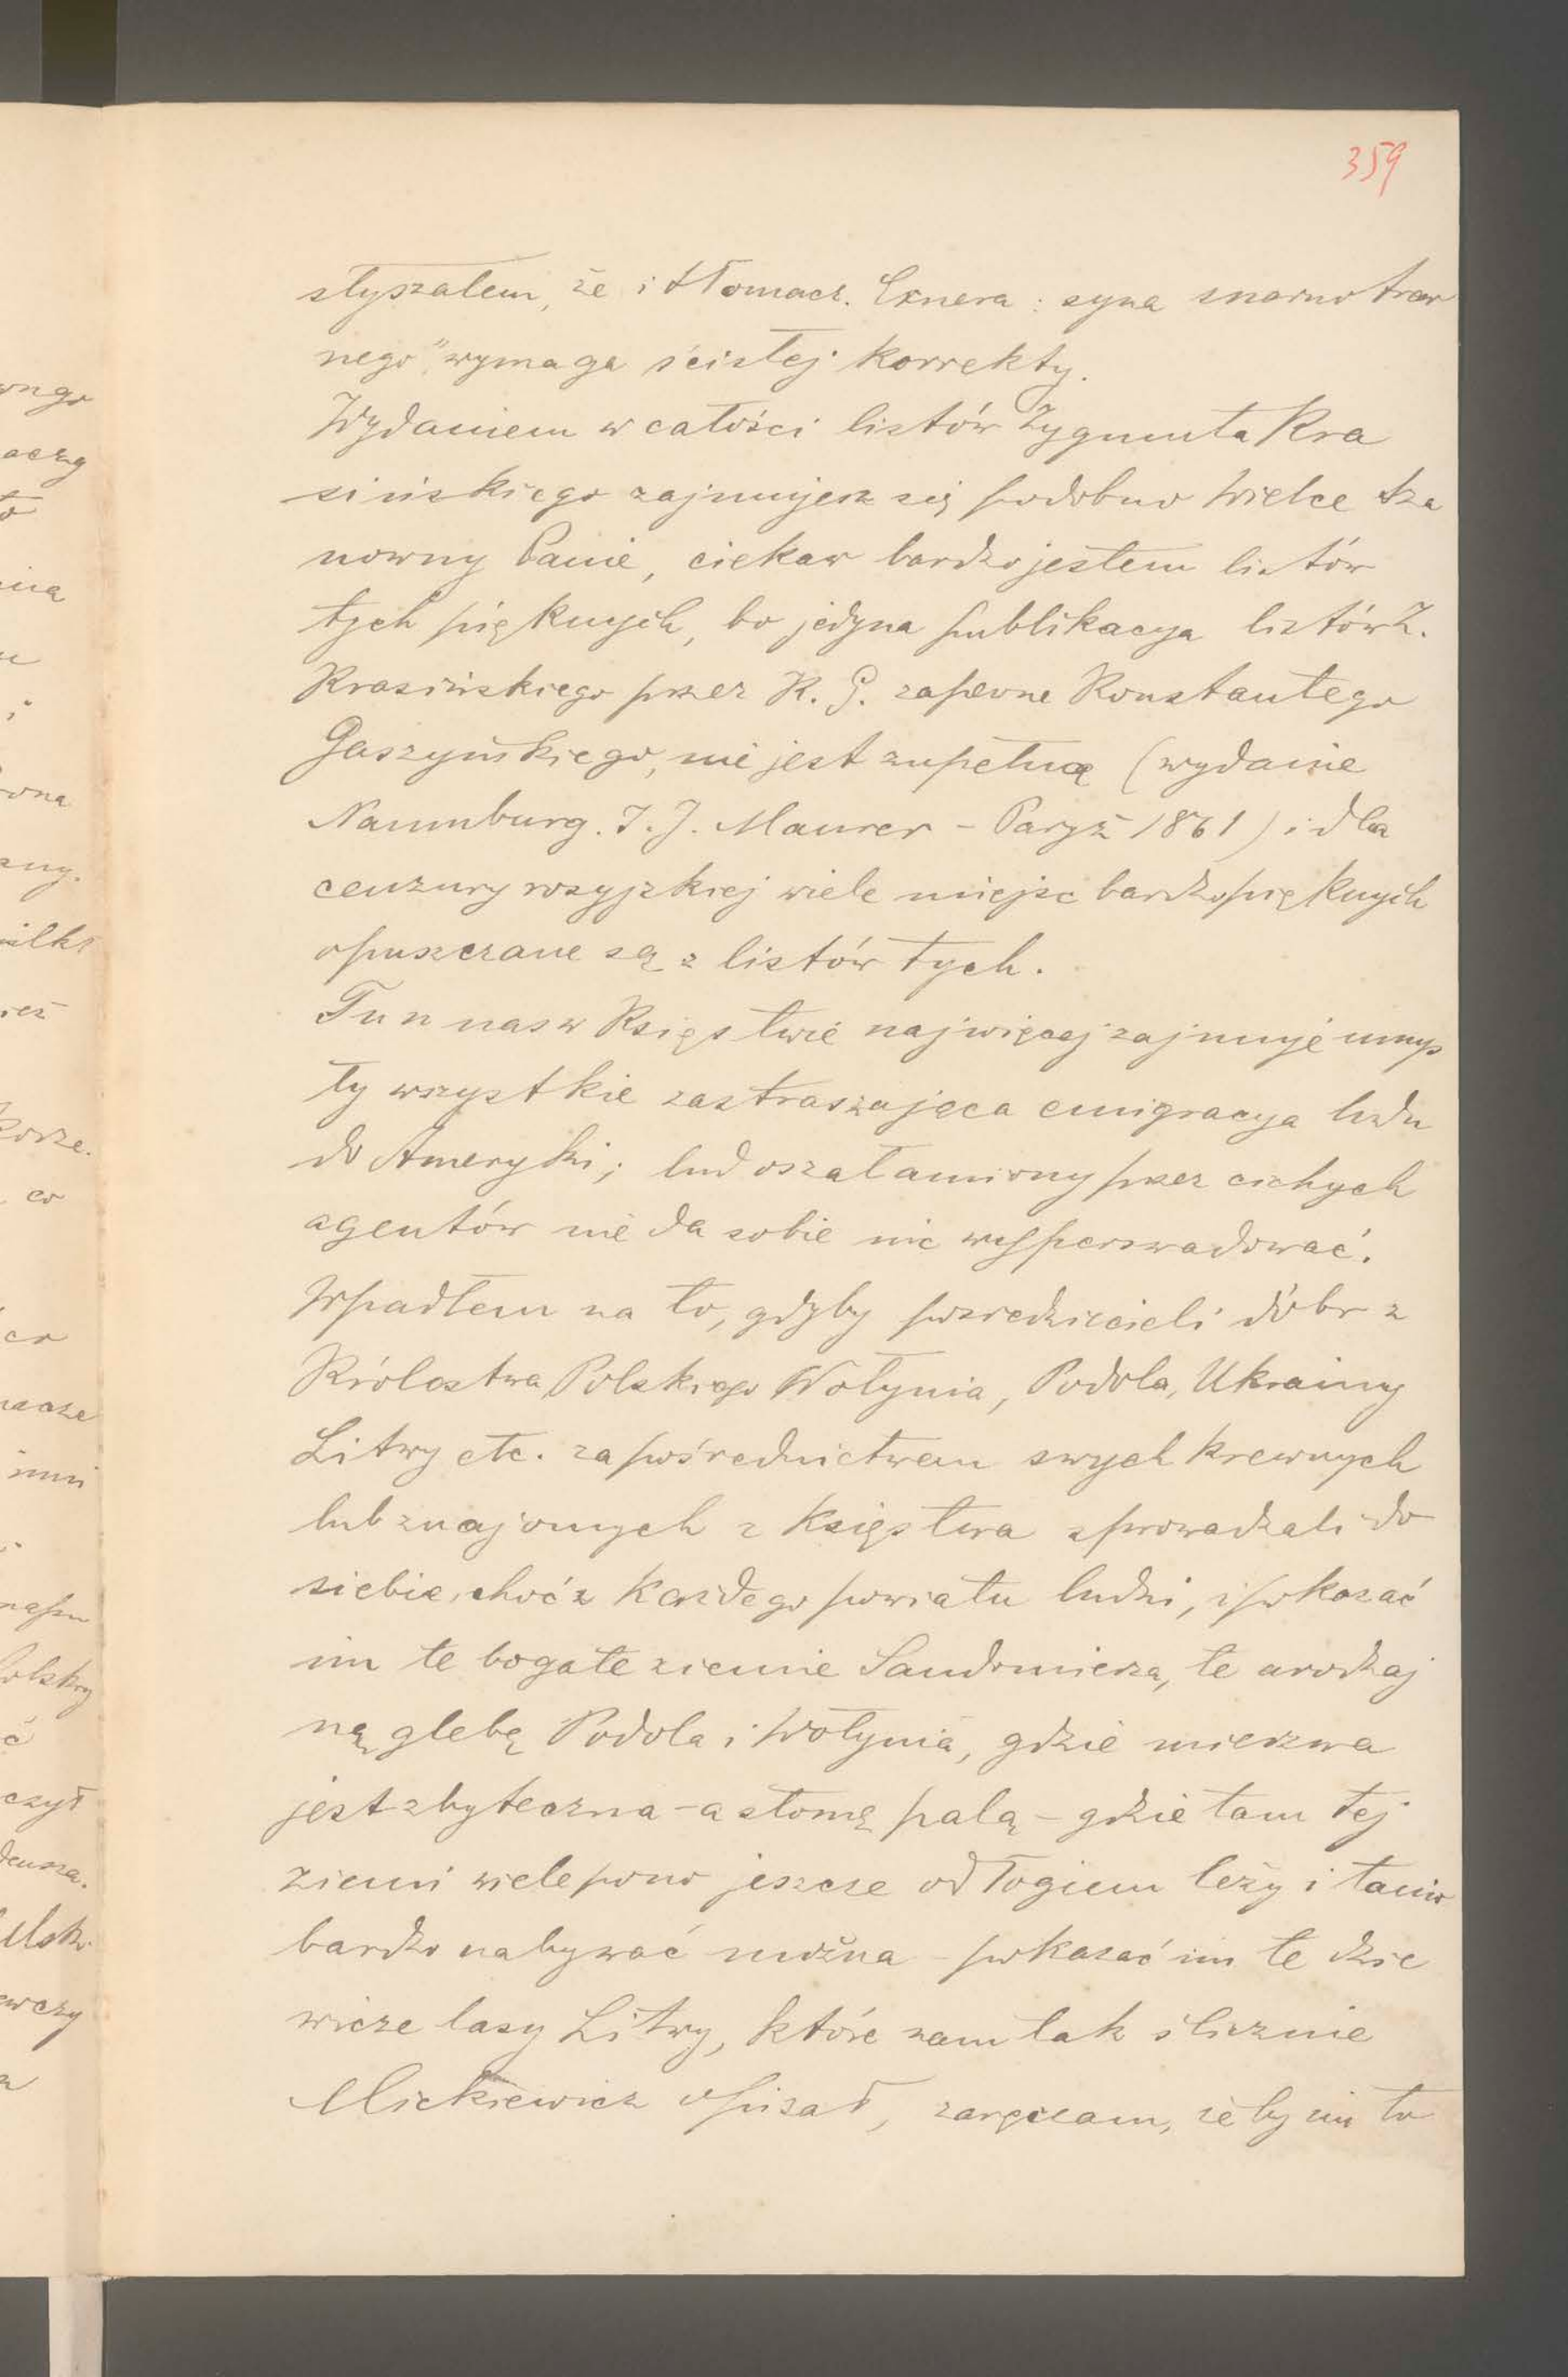 359
słyszałem, że i tłomacz. Exnera: syna marnotraw
nego" wymaga ścisłej korrekty.
Wydaniem w całości listów Zygmunta Kra
sińskiego zajmujesz się podobno Wielce Sza
nowny Panie, ciekaw bardzo jestem listów
tych pięknych, bo jedyna publikacya listów Z.
Krasińskiego przez K. G. zapewne Konstantego
Gaszyńskiego, nie jest zupełną (wydanie
Naumburg. I. J. Maurer - Paryż 1861) i dla
cenzury rosyjskiej wiele miejsc bardzo pięknych
opuszczane są z listów tych.
Tu u nas w Księstwie najwięcej zajmuje umys
ły wszystkie zastraszająca emigracya ludu
do Ameryki; lud oszałamiony przez cichych
agentów nie da sobie nic wyperswadować.
Wpadłem na to, gdyby posiedziciele dóbr z
Królestwa Polskiego Wołynia, Podola, Ukrainy
Litwy etc. za pośrednictwem swych krewnych
lub znajomych z Księstwa sprowadzali do
siebie, choć z każdego powiatu ludzi, i pokazać
im te bogate ziemie Sandomierza, te urodzaj
ną glebę Podola i Wołynia, gdzie mierzwa
jest zbyteczna - a słomę palą - gdzie tam tej
ziemi wiele pono jeszcze odłogiem leży i tanio
bardzo nabywać można - pokazać im te dzie
wicze lasy Litwy, które nam tak ślicznie
Mickiewicz opisał, zaręczam, żeby im to